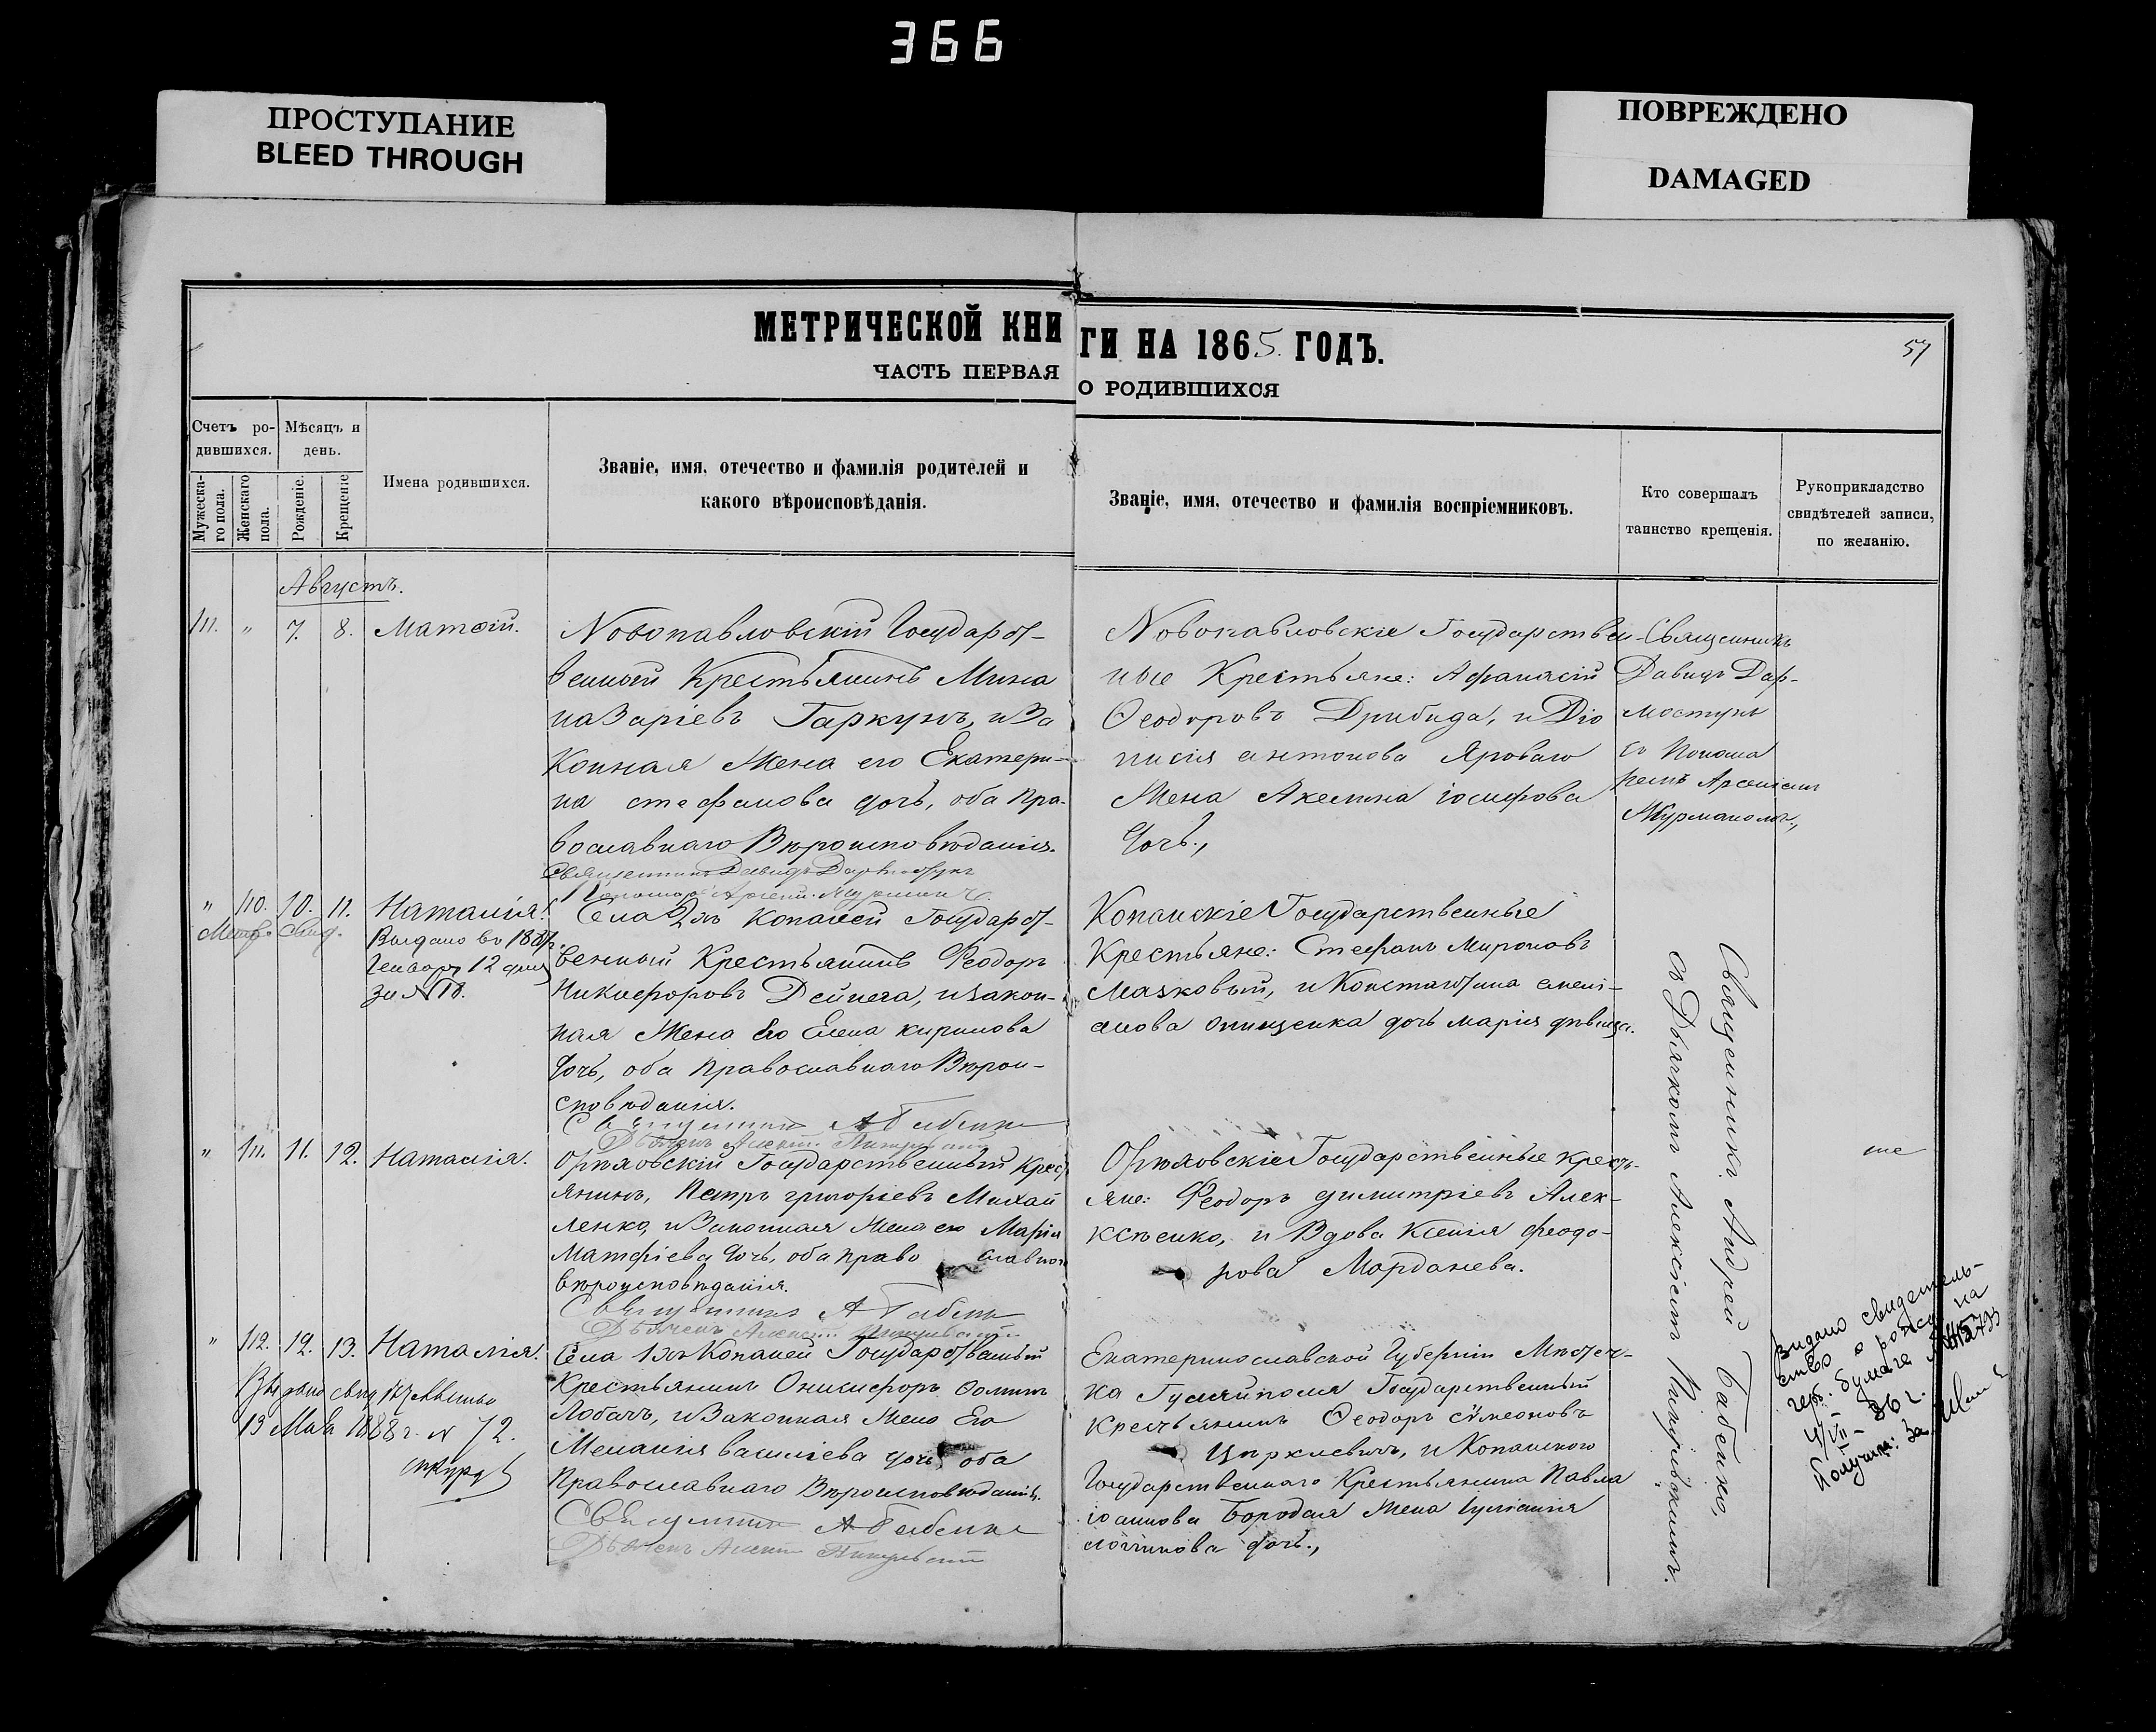 366
ПРОСТУПАНИЕ
BLEED THROUGH
ПОВРЕЖДЕНО
DAMAGED
МЕТРИЧЕСКОЙ КНИГИ НА 1865. ГОДЪ.
57
ЧАСТЬ ПЕРВАЯ О РОДИВШИХСЯ
Счетъ ро-
дившихся.
Мѣсяцъ и
день.
Мужеска-
го пола.
Женскаго
пола.
Рожденіе.
Крещеніе
Имена родившихся.
Званіе, имя, отечество и фамилія родителей и
какого вѣроисповѣданія.
Званіе, имя, отечество и фамилія воспріемниковъ.
Кто совершалъ
таинство крещенія.
Рукоприкладство
свидѣтелей записи,
по желанію.
Августъ.
111. " 7. 8. Матѳій.
Новопавловскій Государст-
венный Крестьянинъ Мина
Назаріевъ Гаркунъ, и За
Конная Жена его Екатери-
на стефанова дочь, оба пра-
вославнаго Вѣроисповѣданія.
Священникъ Давидъ
Пономарь
Новопавловскіе Государствен-
ные Крестьяне: Афанасій
Ѳеодоровъ Дрибида, и Діо
нисія антонова Яроваго
Жена Акелина іосифова
дочь.,
Священникъ
Давидъ Дар-
мостукъ
съ Понома
ремъ Арсеніемъ
" 110. 10. 11. Наталія.
Метр. Свид.
Выдано въ 188
Генваря 12 дня
за N 18.
Села 2хъ Копаней Государст-
венный Крестьянинъ Феодоръ
Никифоровъ Дейнега, и закон-
ная Жена Его Елена кирилова
дочь, оба Православнаго Вѣрои-
сповѣданія.
Священникъ А Бабенко
Копанскіе Государственные
Крестьяне: Стефанъ Мироновъ
Мазковый, и Константина емелі-
анова онищенка дочь марія дѣвица.
Священникъ Андрей Бабенко,
съ Дьячкомъ Алексіемъ
" 111. 11. 12. Наталія.
Орѣховскій Государственный Крест
янинъ, Петръ григоріевъ Михай
ленко, и Законная Жена его Марія
Матфіева дочь, оба право славнаго
вѣроисповѣданія.
Священникъ А Бабенко
Орѣховскіе Государственные кресть-
яне: Феодоръ димитріевъ Алек-
ксѣенко, и Вдова Ксенія феодо-
рова Морданева.
" 112. 12. 13. Наталія.
Выдано свидѣтельство
13 Мая 1888 г. N 72.
Села 1хъ Копаней Государственный
Крестьянинъ Онисифоръ Ѳоминъ
Лобачъ, и Законная Жена Его
Меланія василіева дочь, оба
Православнаго Вѣроисповѣданія.
Священникъ А Бабенко
Екатеринославской Губерніи Мѣстеч-
ка Гуляйполя Государственный
крестьянинъ Ѳеодоръ сѵмеоновъ
и Копанского
Государственнаго Крестьянина Павла
іоаннова Бородая Жена Іуліанія
дочь.,
Видано свидетель-
ство о рожд. на
герб. бумаге
4/VII – 36 г.
Получил: За